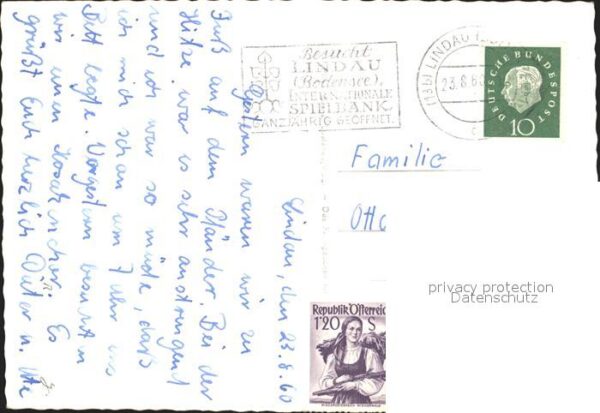 Lindau, den 23.8.60
Gestern waren wir zu
Fuß auf dem Pfänder. Bei der
Hitze war es sehr anstrengend
und ich war so müde, daß
ich mich schon um 7 Uhr ins
Bett legte. Vorgestern besuchten
wir einen Kosakenchor. Es
grüßt Euch herzlich Dieter u. Ute
Besucht
LINDAU
(Bodensee),
INTERNATIONALE
SPIELBANK.
GANZJÄHRIG GEÖFFNET.
(13b) LINDAU
23.8.60
DEUTSCHE BUNDESPOST
10
Familie
Otto
privacy protection
Datenschutz
Republik Österreich
1'20 S